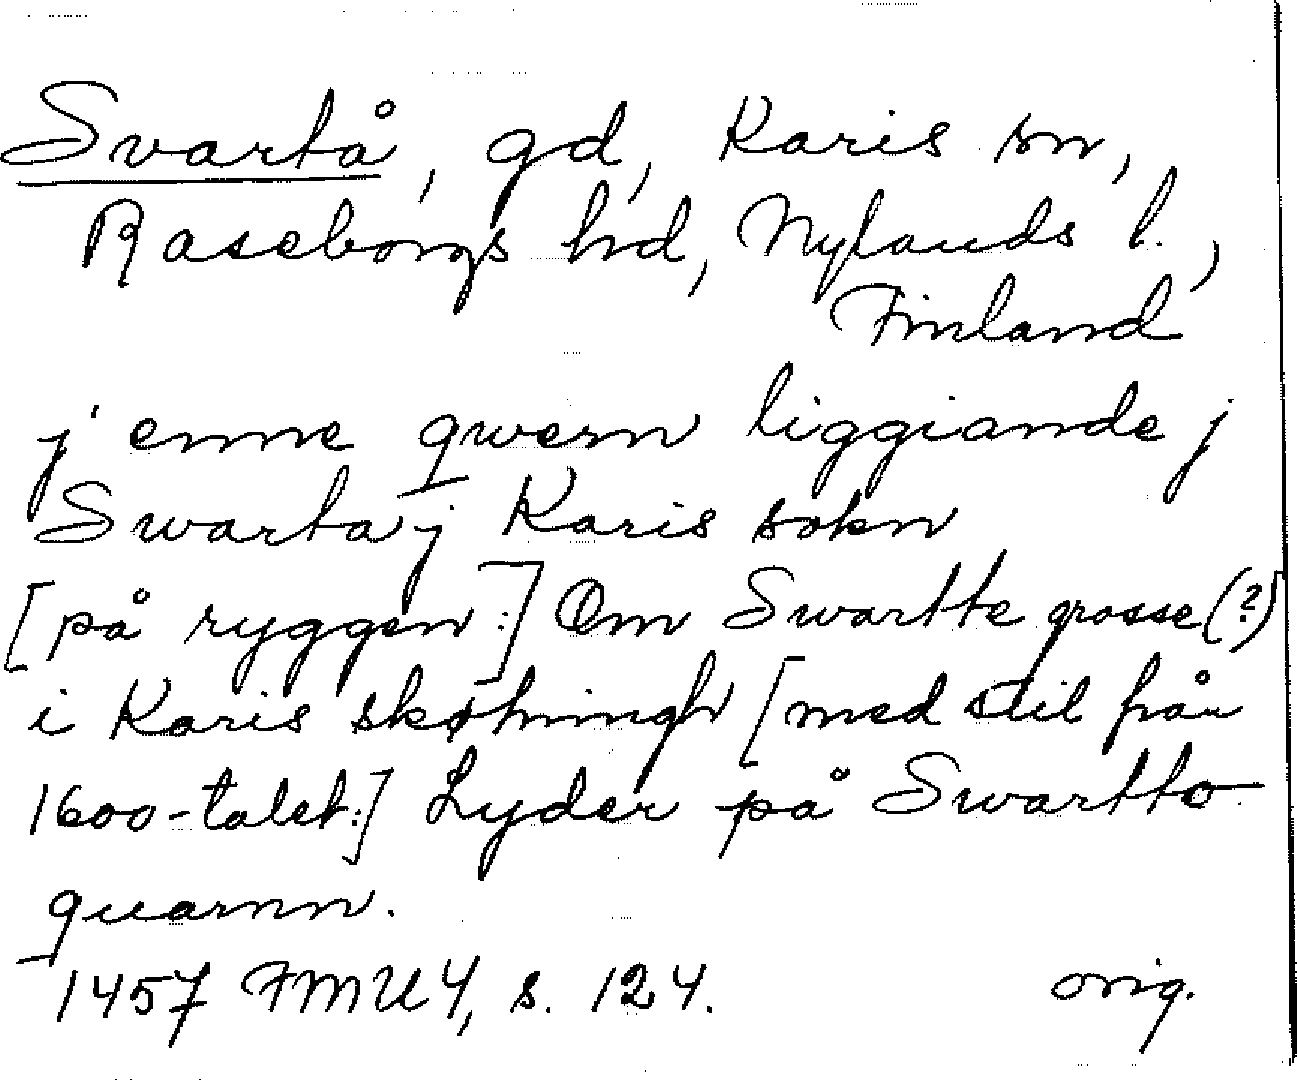 Svartå, gd, Karis sn,
Raseborgs hd, Nylands l.,
Finland
j enne qwern liggiande j
Swarta j Karis sokn
[på ryggen:] Om Swartte grosse (?)
i Karis skøtningh [med stil från
1600-talet:] Lyder på Swartto
quarnn.
1457 FMU 4, s. 124. orig.